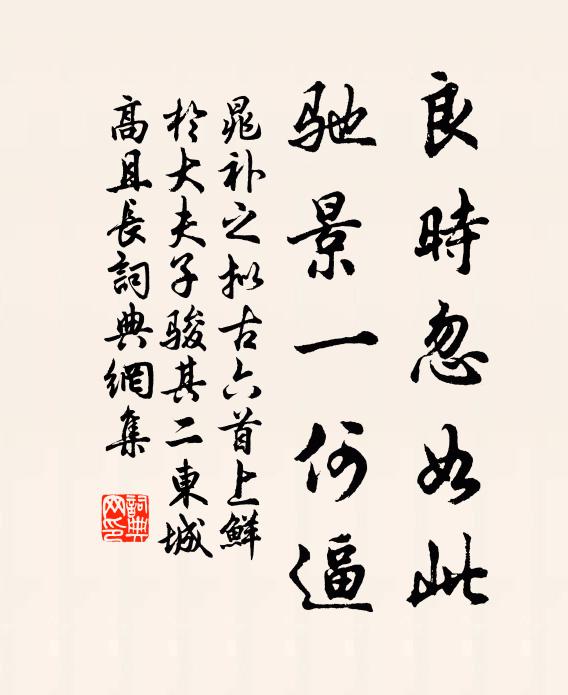 良時忽如此
驰景一何逼
晁补之拟古六首上鲜
於大夫子骏其二東城
高且長詞典網集
詞典
网印